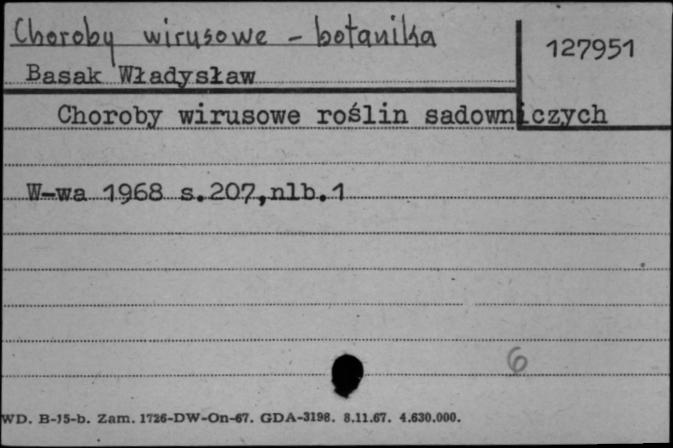 Choroby wirusowe - botanika
127951
Basak Władysław
Choroby wirusowe roślin sadowniczych
W-wa 1968 s.207,nlb.1
6
WD. B-15-b. Zam. 1726-DW-On-67. GDA-3198. 8.11.67. 4.630.000.